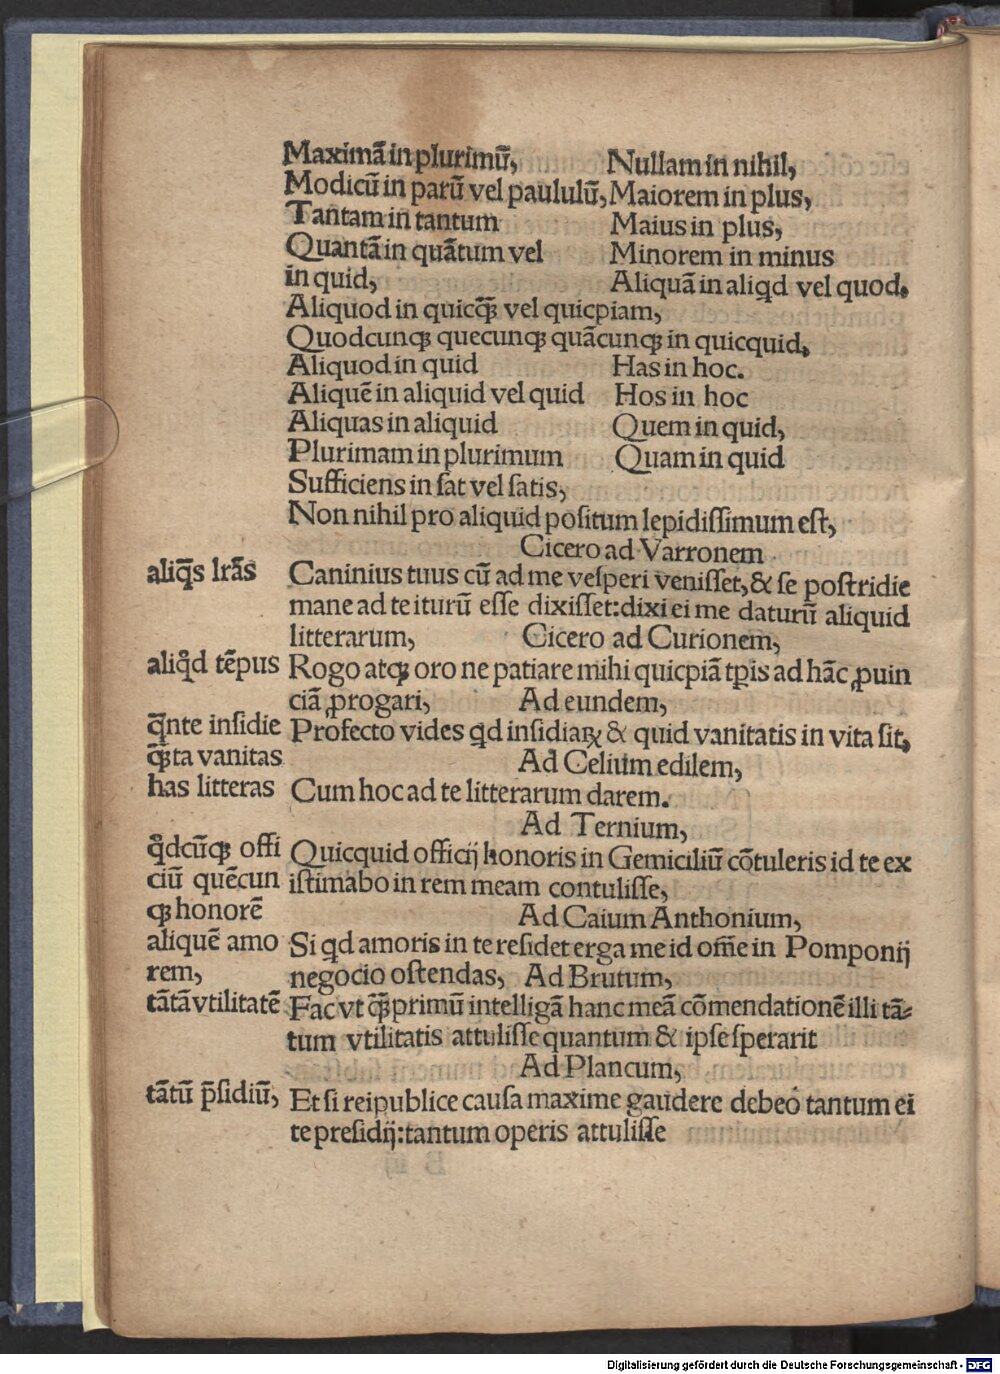 Maximā in plurimū, Nullam in nihil,
Modicū in parū vel paululū, Maiorem in plus,
Tantam in tantum Maius in plus,
Quantā in quātum vel Minorem in minus
in quid, Aliquā in aliqd vel quod.
Aliquod in quicq̄ꝫ vel quicpiam,
Quodcunqꝫ quecunqꝫ quācunqꝫ in quicquid.
Aliquod in quid Has in hoc.
Aliquē in aliquid vel quid Hos in hoc
Aliquas in aliquid Quem in quid,
Plurimam in plurimum Quam in quid
Sufficiens in sat vel satis,
Non nihil pro aliquid positum lepidissimum est,
Cicero ad Varronem
aliq̄s lr̄as Caninius tuus cū ad me vesperi venisset, & se postridie
mane ad te iturū esse dixisset: dixi ei me daturū aliquid
litterarum, Cicero ad Curionem,
aliqd tēpus Rogo atqꝫ oro ne patiare mihi quicpiā tꝑis ad hāc ꝓuin
ciā ꝓrogari, Ad eundem,
q̄nte insidie Profecto vides qd insidiaꝝ & quid vanitatis in vita sit.
q̄ꝫta vanitas Ad Celium edilem,
has litteras Cum hoc ad te litterarum darem.
Ad Ternium,
qdcūqꝫ offi Quicquid officij honoris in Gemiciliū cōtuleris id te ex
ciū quēcun istimabo in rem meam contulisse,
qꝫ honorē Ad Caium Anthonium,
aliquē amo Si qd amoris in te residet erga me id om̄e in Pomponij
rem, negocio ostendas, Ad Brutum,
tātā vtilitatē Fac vt q̄ꝫprimū intelligā hanc meā cōmendationē illi tā-
tum vtilitatis attulisse quantum & ipse sperarit
Ad Plancum,
tātū p̄sidiū, Et si reipublice causa maxime gaudere debeo tantum ei
te presidij: tantum operis attulisse
Digitalisierung gefördert durch die Deutsche Forschungsgemeinschaft - DFG